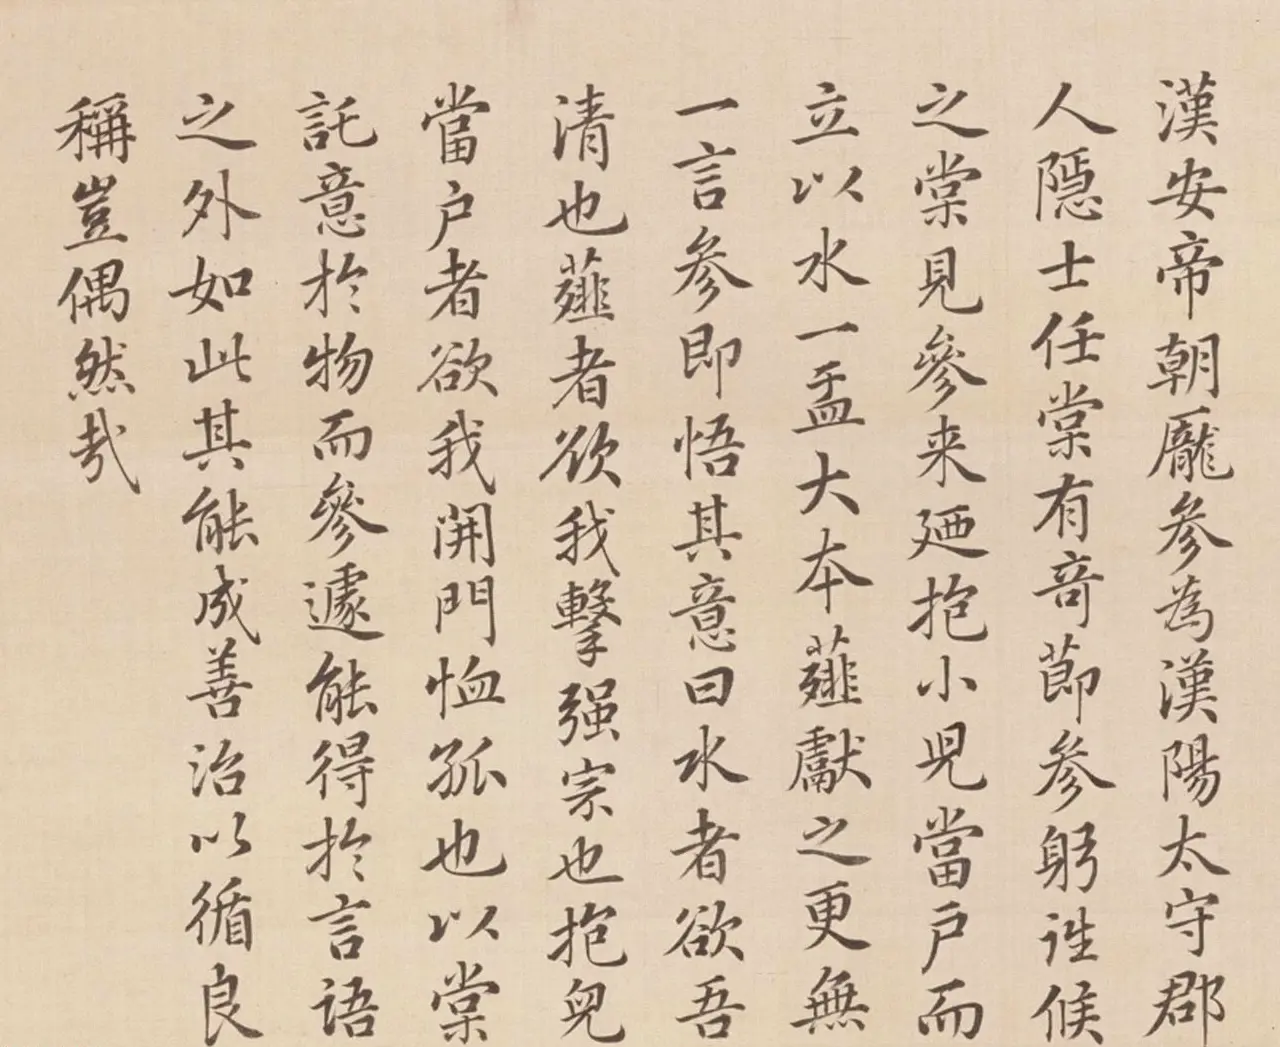 漢安帝朝龐参為漢陽太守郡
人隱士任棠有竒節参躬詣候
之棠見參来廼抱小児當户而
立以水一盂大本薤獻之更無
一言参即悟其意曰水者欲吾
清也薤者欲我擊强宗也抱兒
當户者欲我開門恤孤也以棠
託意於物而參遽能得於言語
之外如此其能成善治以循良
稱豈偶然哉